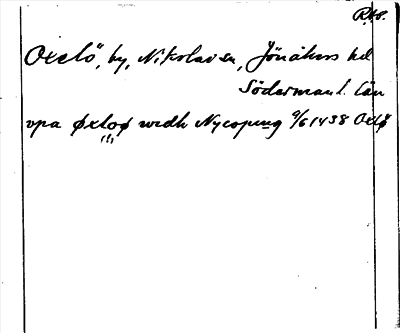 R.to.
Oxelö, by, Nikolai sn, Jönåkers hd
Södermanl. län
vpa øxloø wedh Nycoping 9/6 1438 Oxlø
(!)